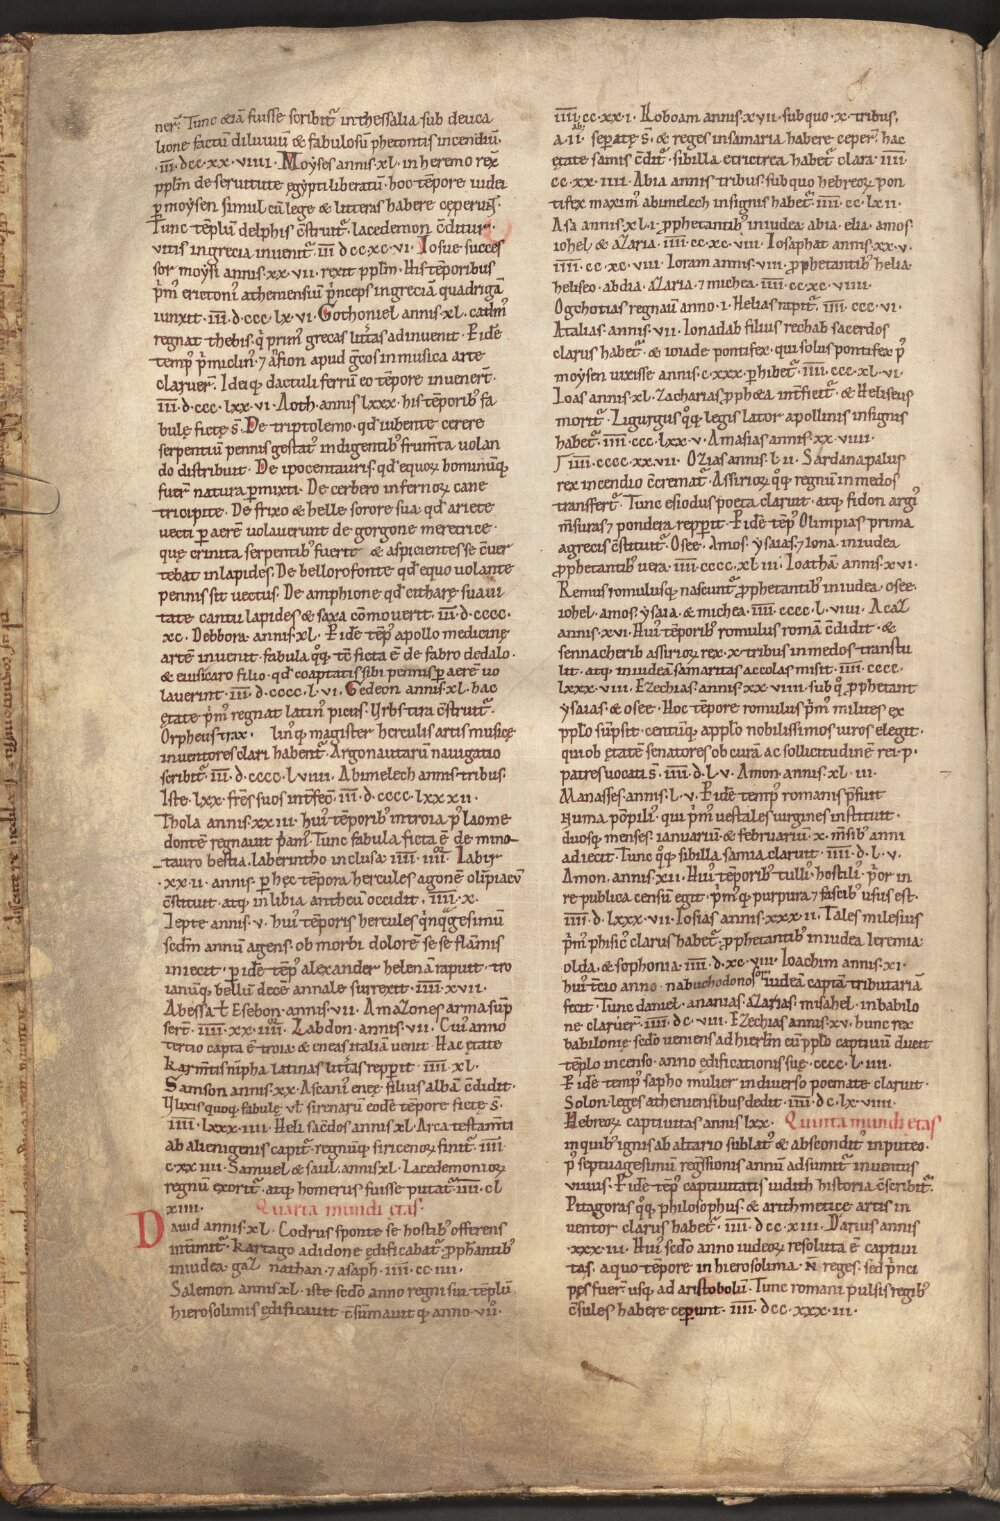 ner̄. Tunc &iā fuisse scribit᷑ in thessalia sub deuca
lione factū diluuiū & fabulosū phetontis incendiū.
·īīī·dcc·xx·viiii· Moyses annis·xl· in heremo rex̄
pplm̄ de seruitute ęgypti liberatū· hoc tēpore iudei
ꝑ moysen simul cū lege & litteras habere cęperūt·
Tunc tēplū delphis c̄struit᷑. lacedemon c̄ditur·
vitis in grecia inuenit᷑·īīī dcc·xc·vi· Iosue succes
sor moysi annis·xx·vii· rexit pplm̄. His tēporibus
p̄mꝰ erictoniꝰ atheniensiū p̄nceps in greciā quadrigā
iunxit·īīī·d·ccc·lx·vi. Gothoniel annis·xl· cadmꝰ
regnat thebis· q̄ primꝰ grecas litt̄as adinuenit· Eidē
tempꝰ 7 āfion apud ḡcos in musica arte
claruer̄. Ideiq; dactuli ferrū eo tēpore inuenert̄.
īīī·d·ccc·lxx·vi· Aoth·annis lxxx· his tēporibꝰ fa
bulę fictę s̄. De triptolemo· qd̄ iubente cerere
serpentiū pennis gestatꝰ indigentibꝰ frum̄ta uolan
do distribuit· De ipocentauris· qd̄ equoꝝ hominūq;
fuer̄ natura ꝑmixti· De cerbero infernoꝝ cane
tricipite· De frixo & helle sorore sua· qd̄ ariete
uecti ꝑ aerē uolauerunt de gorgone meretrice·
quę crinita serpentibꝰ fuerit & aspicientes se c̄uer
tebat in lapides. De bellorofonte qd̄ equo uolante
pennis sit uectus. De amphione qd̄ citharę suaui
tate cantu lapides & saxa cōmouerit·īīī·d·cccc·
xc· Debbora· annis·xl· Eidē tēpꝰ apollo medicinę
artē inuenit· fabula q̊q; tc̄ ficta ē de fabro dedalo·
& eiꝰ icaro filio· qd̄ coaptatis sibi pennis ꝑ aerē uo
lauerint·īīī·d·cccc·l·vi· Gedeon annis·xl· hac
ętate p̄mꝰ regnat latinꝰ picus· Vrbs tira c̄struit᷑.
Orpheus trax· linꝰq; magister herculis artis musicę
inuentores clari habent᷑. Argonautarū nauigatio
scribit᷑·īīī·d·cccc·l·viiii· Abimelech annis·tribus·
Iste·lxx·frēs suos int̄fec̄·īīī·d·cccc·lxxxii·
Thola annis·xx·iii· huiꝰ tēporibꝰ in troia pꝰ laome
dontē regnauit p̄amꝰ. Tunc fabula ficta ē· de mino
tauro bestia· laberintho inclusa·īīīī·īīīī· Iahir
·xx·ii· annis· ꝑ hęc tēpora hercules agonē olīpiacū
c̄stituit· atq; in libia antheū occidit·īīīī·x·
Iepte annis·v· huiꝰ tēporis hercules q̄nq̄gesimū
sedm̄ annū agens· ob morbi dolorē se se flāmis
iniecit· ꝑ idē tēpꝰ alexander helenā rapuit· tro
ianūq; bellū decē annale surrexit·īīīī·xvii·
Abessa ł Esebon· annis·vii· Amazones arma sūp
sert̄·īīīī·xx·īīīī· Labdon· annis·vii· Cuiꝰ anno
tertio capta ē troia· & eneas italiā venit· Hac ętate
karm̄tis nīpha latinas litt̄as repperit·īīīī·xl·
Samson annis·xx· Ascaniꝰ enęę filius albā c̄didit·
Ylixis quoq; fabulę vł sirenarū eodē tēpore fictę s̄·
īīīī·lxxx·iiii· Heli sac̄dos annis·xl· Arca testam̄ti
ab alienigenis capit᷑· regnūq; siricenoꝝ finit᷑·īīīī·
c·xx iiii· Samuel & saul· annis·xl· Lacedemonioꝝ
regnū exorit᷑· atq; homerus fuisse putat᷑·īīīī·cl
xiiii· Quarta mundi ętas·
Dauid annis·xl· Codrus sponte se hostibꝰ offerens
intimit᷑· kartago a didone ędificabat᷑· pph̄antibꝰ
in iudea· gaz nathan·7 asaph·īīīī·cc·iiii·
Salemon annis·xl· iste sed̄o anno regni sui tēplū
hierosolimis ędificauit c̄sūmauit q; anno·viiꝰ·
īīīī·cc·xx·i· Roboam annis·xvii· sub quo·x·tribus·
a·ii· seperatę s̄· & reges in samaria habere ceper̄· hac
ętate samis c̄dit᷑· sibilla ecrictrea· habet᷑ clara·īīīī
cc·xx·iiii· Abia annis tribus· sub quo hebreoꝝ pon
tifex maximꝰ abimelech insignis habet᷑·īīīī·cc·lxii·
Asa annis·xl·i· prophetantibꝰ in iudea· abia· elia· amos·
iohel & azaria·īīīī·cc·xc·viii· Iosaphat annis·xx·v·
īīīī·cc·xc·viii· Ioram annis·viii· prophetantibꝰ helia·
heliseo· abdia· azaria·7 michea·īīīī·cc·xc·viiii·
Ogchotias regnau᷑ anno·i· Helias rapit᷑·īīīī·ccc·vi·
Atalias· annis·vii· Ionadab filius rechab sacerdos
clarus habet᷑· & ioiade pontifex· qui solus pontifex pꝰ
moysen uixisse annis·c·xxx·ꝑhibet᷑·īīīī·ccc·xl·vi·
Ioas annis·xl· Zacharias pph̄ea int̄ficit᷑· & Heliseus
morit᷑· Ligurgus q̊q; legis lator apollinis insignis
habet᷑·īīīī·ccc·lxx·v· Amasias annis·xx·viiii·
īīīī·cccc·xx·vii· Ozias annis·l·ii· Sardanapalus
rex incendio c̄cremat᷑· Assirioꝝ q̊q; regnū in medos
transfert᷑· Tunc esiodus poeta claruit· atq; fidon argiꝰ
m̄suras 7 pondera repperit· Eidē tēpꝰ Olimpias prima
a grecis c̄stituit᷑· Osee· Amos· ysaias·7 Iona· in iudea
prophetantibꝰ uera·īīīī·cccc·xl·iii· Ioathā· annis·xvi·
Remus romulusq; nascunt᷑ prophetantibꝰ in iudea· osee·
iohel· amos· ysaia· & michea·īīīī·cccc·l·viiii· Acaz
annis·xvi· Huiꝰ tēporibꝰ romulus romā c̄didit· &
sennacherib assirioꝝ rex·x·tribus in medos transtu
lit· atq; in iudeā samaritas accolas misit·īīīī·cccc·
lxxx·viii· Ezechias· annis·xx·viiii· sub q̊ prophetant
ysaias· & osee· Hoc tēpore romulus p̄mꝰ milites ex
pplo sūpsit· centūq; a pplo nobilissimos uiros elegit·
qui ob ętatē senatores ob curā ac sollicitudinē rei·p·
patres uocati s̄·īīīī·d·l·v· Amon· annis·xl·iii·
Manasses· annis·l·v· Eidē tempꝰ romanis p̄fuit
Numa pōpiliꝰ· qui p̄mꝰ uestales uirgines instituit·
duosq; menses· ianuariū· & februariū·x· m̄sibꝰ anni
adiecit· Tunc q̊q; sibilla samia claruit·īīīī·d·l·v·
Amon· annis·xii· Huiꝰ tēporibꝰ tulliꝰ hostiliꝰ p̄or in
re publica censū egit· p̄mꝰq; purpura 7 fascibꝰ usus est·
īīīī·d·lxxx·vii· Iosias annis·xxx·ii· Tales milesius
p̄mꝰ phisicꝰ clarus habet᷑ prophetantibꝰ in iudea Ieremia·
olda· & sophonia·īīīī·d·xc·viii· Ioachim annis·xi·
huiꝰ tc̄io anno· nabuchodonosor iudeā captā tributariā
fecit· Tunc daniel· ananias· azarias· misahel· in babilo
ne claruer̄·īīīī·dc·viii· Ezechias annis·xv· hunc rex
babilonię sedo ueniens ad hierlm̄ cū pplo captiuū ducit
tēplo incenso· anno ędificationis suę·cccc·l·iiii·
Eidē tempꝰ sapho mulier in diuerso poemate claruit·
Solon· leges atheniensibus dedit·īīīī·dc·lx·viiii·
Hebreoꝝ captiuitas annis lxx· Quinta mundi etas
in quibꝰ ignis ab altario sublatꝰ & absconditꝰ in puteo·
pꝰ septuagesimū reg̅ssionis annū adsumit᷑ inuentus
uiuus· Eidē tēpꝰ captiuitatis iudith historia c̄scribit᷑·
Pitagoras q̊q; philosophus· & arithmetice artis in
uentor clarus habet᷑·īīīī·dcc·xiii· Darius annis
·xxx·iii· Huiꝰ sed̄o anno iudeoꝝ resoluta ē captiui
tas· a quo tēpore in hierosolima· n̄ reges· sed p̄nci
pes fuer̄· usq; ad aristobolū· Tunc romani pulsis regibꝰ
c̄sules habere cęperunt·īīīī·dcc·xxx·iii·